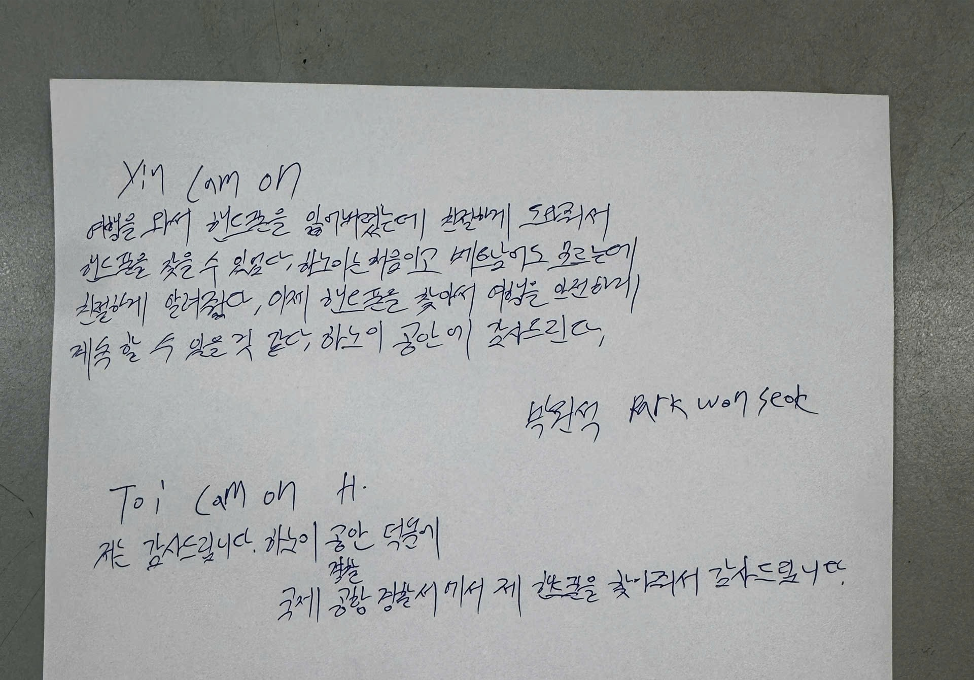 Xin cam on
여행을 와서 핸드폰을 잃어버렸는데 친절하게 도와줘서
핸드폰을 찾을 수 있었다. 하노이는 처음이고 베트남어도 모르는데
친절하게 알려줬다, 이제 핸드폰을 찾아서 여행을 안전하게
계속 할 수 있을 것 같다, 하노이 공안에 감사드린다,
박원석 Park won seok
Toi cam on H.
저는 감사드립니다. 하노이 공안 덕분에
경찰
국제 공항 경찰서에서 제 핸드폰을 찾아줘서 감사드립니다.